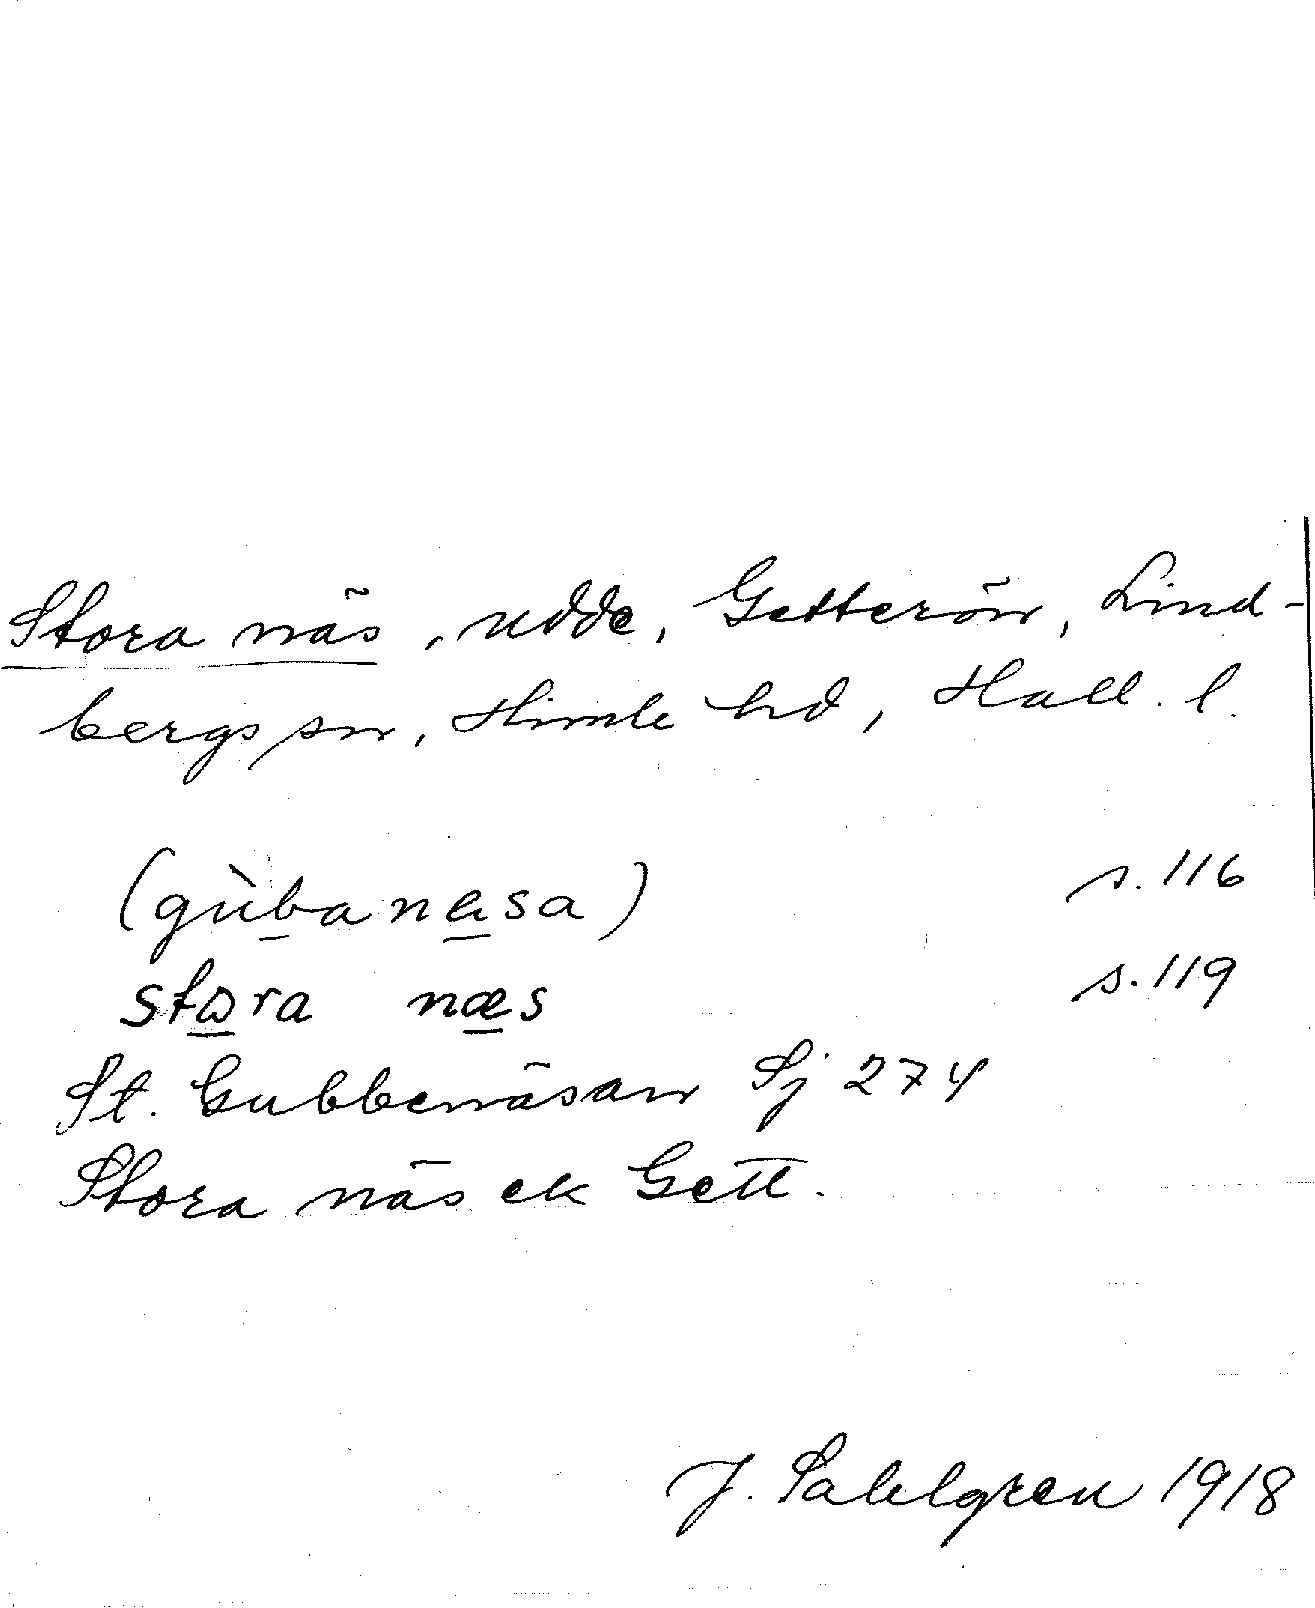 Stora näs, udde, Getterön, Lind-
bergs sn, Himle hd, Hall. l.
(gùbanæsa) s. 116
stωra næs s. 119
St. Gubbenäsan Sj 274
Stora näs ek Gett.
J. Sahlgren 1918